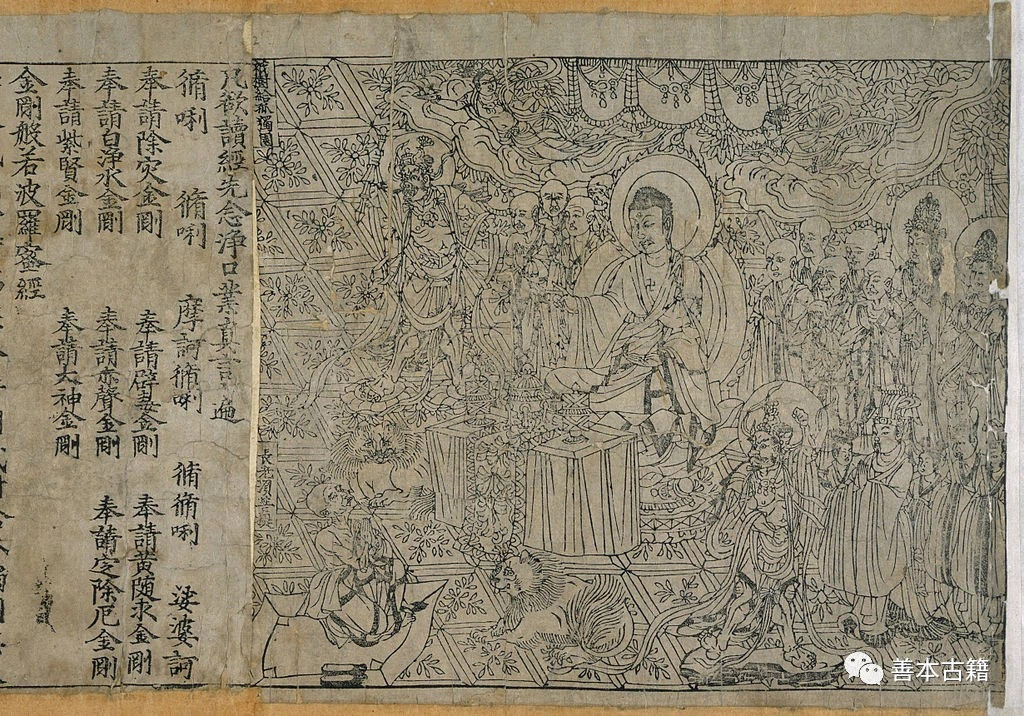 祇樹給孤獨園
長老須菩提
凡欲讀經先念淨口業真言一遍
脩唎 脩唎 摩訶脩唎 脩脩唎 娑婆訶
奉請除灾金剛 奉請辟毒金剛 奉請黄随求金剛
奉請白淨水金剛 奉請赤聲金剛 奉請定除厄金剛
奉請紫賢金剛 奉請大神金剛
金剛般若波羅蜜經
善本古籍